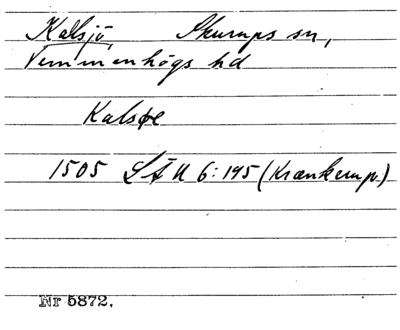 Kalsjö Skurups sn,
Vemmenhögs hd
Kalsøe
1505 LÄU 6:195 (Krankerup.)
Nr 5872.